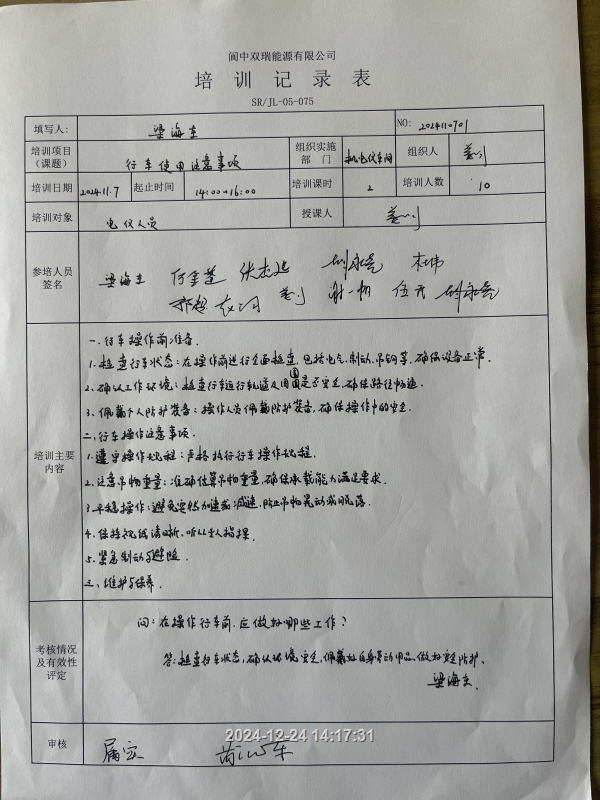 阆中双瑞能源有限公司
培训记录表
SR/JL-05-075
填写人: 梁海生 NO: 2024110701
培训项目（课题） 行车使用注意事项 组织实施部门 机电仪车间 组织人
培训日期 2024.11.7 起止时间 14:00-16:00 培训课时 2 培训人数 10
培训对象 电仪人员 授课人
参培人员签名 梁海生
一、行车操作前准备.
1、检查行车状态:在操作前进行全面检查,包括电气,制动,吊钩等,确保设备正常.
2、确认工作环境:检查行车运行轨道及周围是否安全,确保路径畅通.
3、佩戴个人防护装备:操作人员佩戴防护装备,确保操作中的安全.
二、行车操作注意事项.
培训主要内容
1、遵守操作规程:严格执行行车操作规程.
2、注意吊物重量:准确估算吊物重量,确保承载能力满足要求.
3、平稳操作:避免突然加速或减速,防止吊物晃动或脱落.
4、保持视线清晰,听从专人指挥.
5、紧急制动与避险.
三、维护与保养.
考核情况及有效性评定
问:在操作行车前,应做好哪些工作?
答:检查行车状态,确认环境安全,佩戴好自身劳动用品,做好安全防护.
梁海生.
审核 属实
2024-12-24 14:17:31